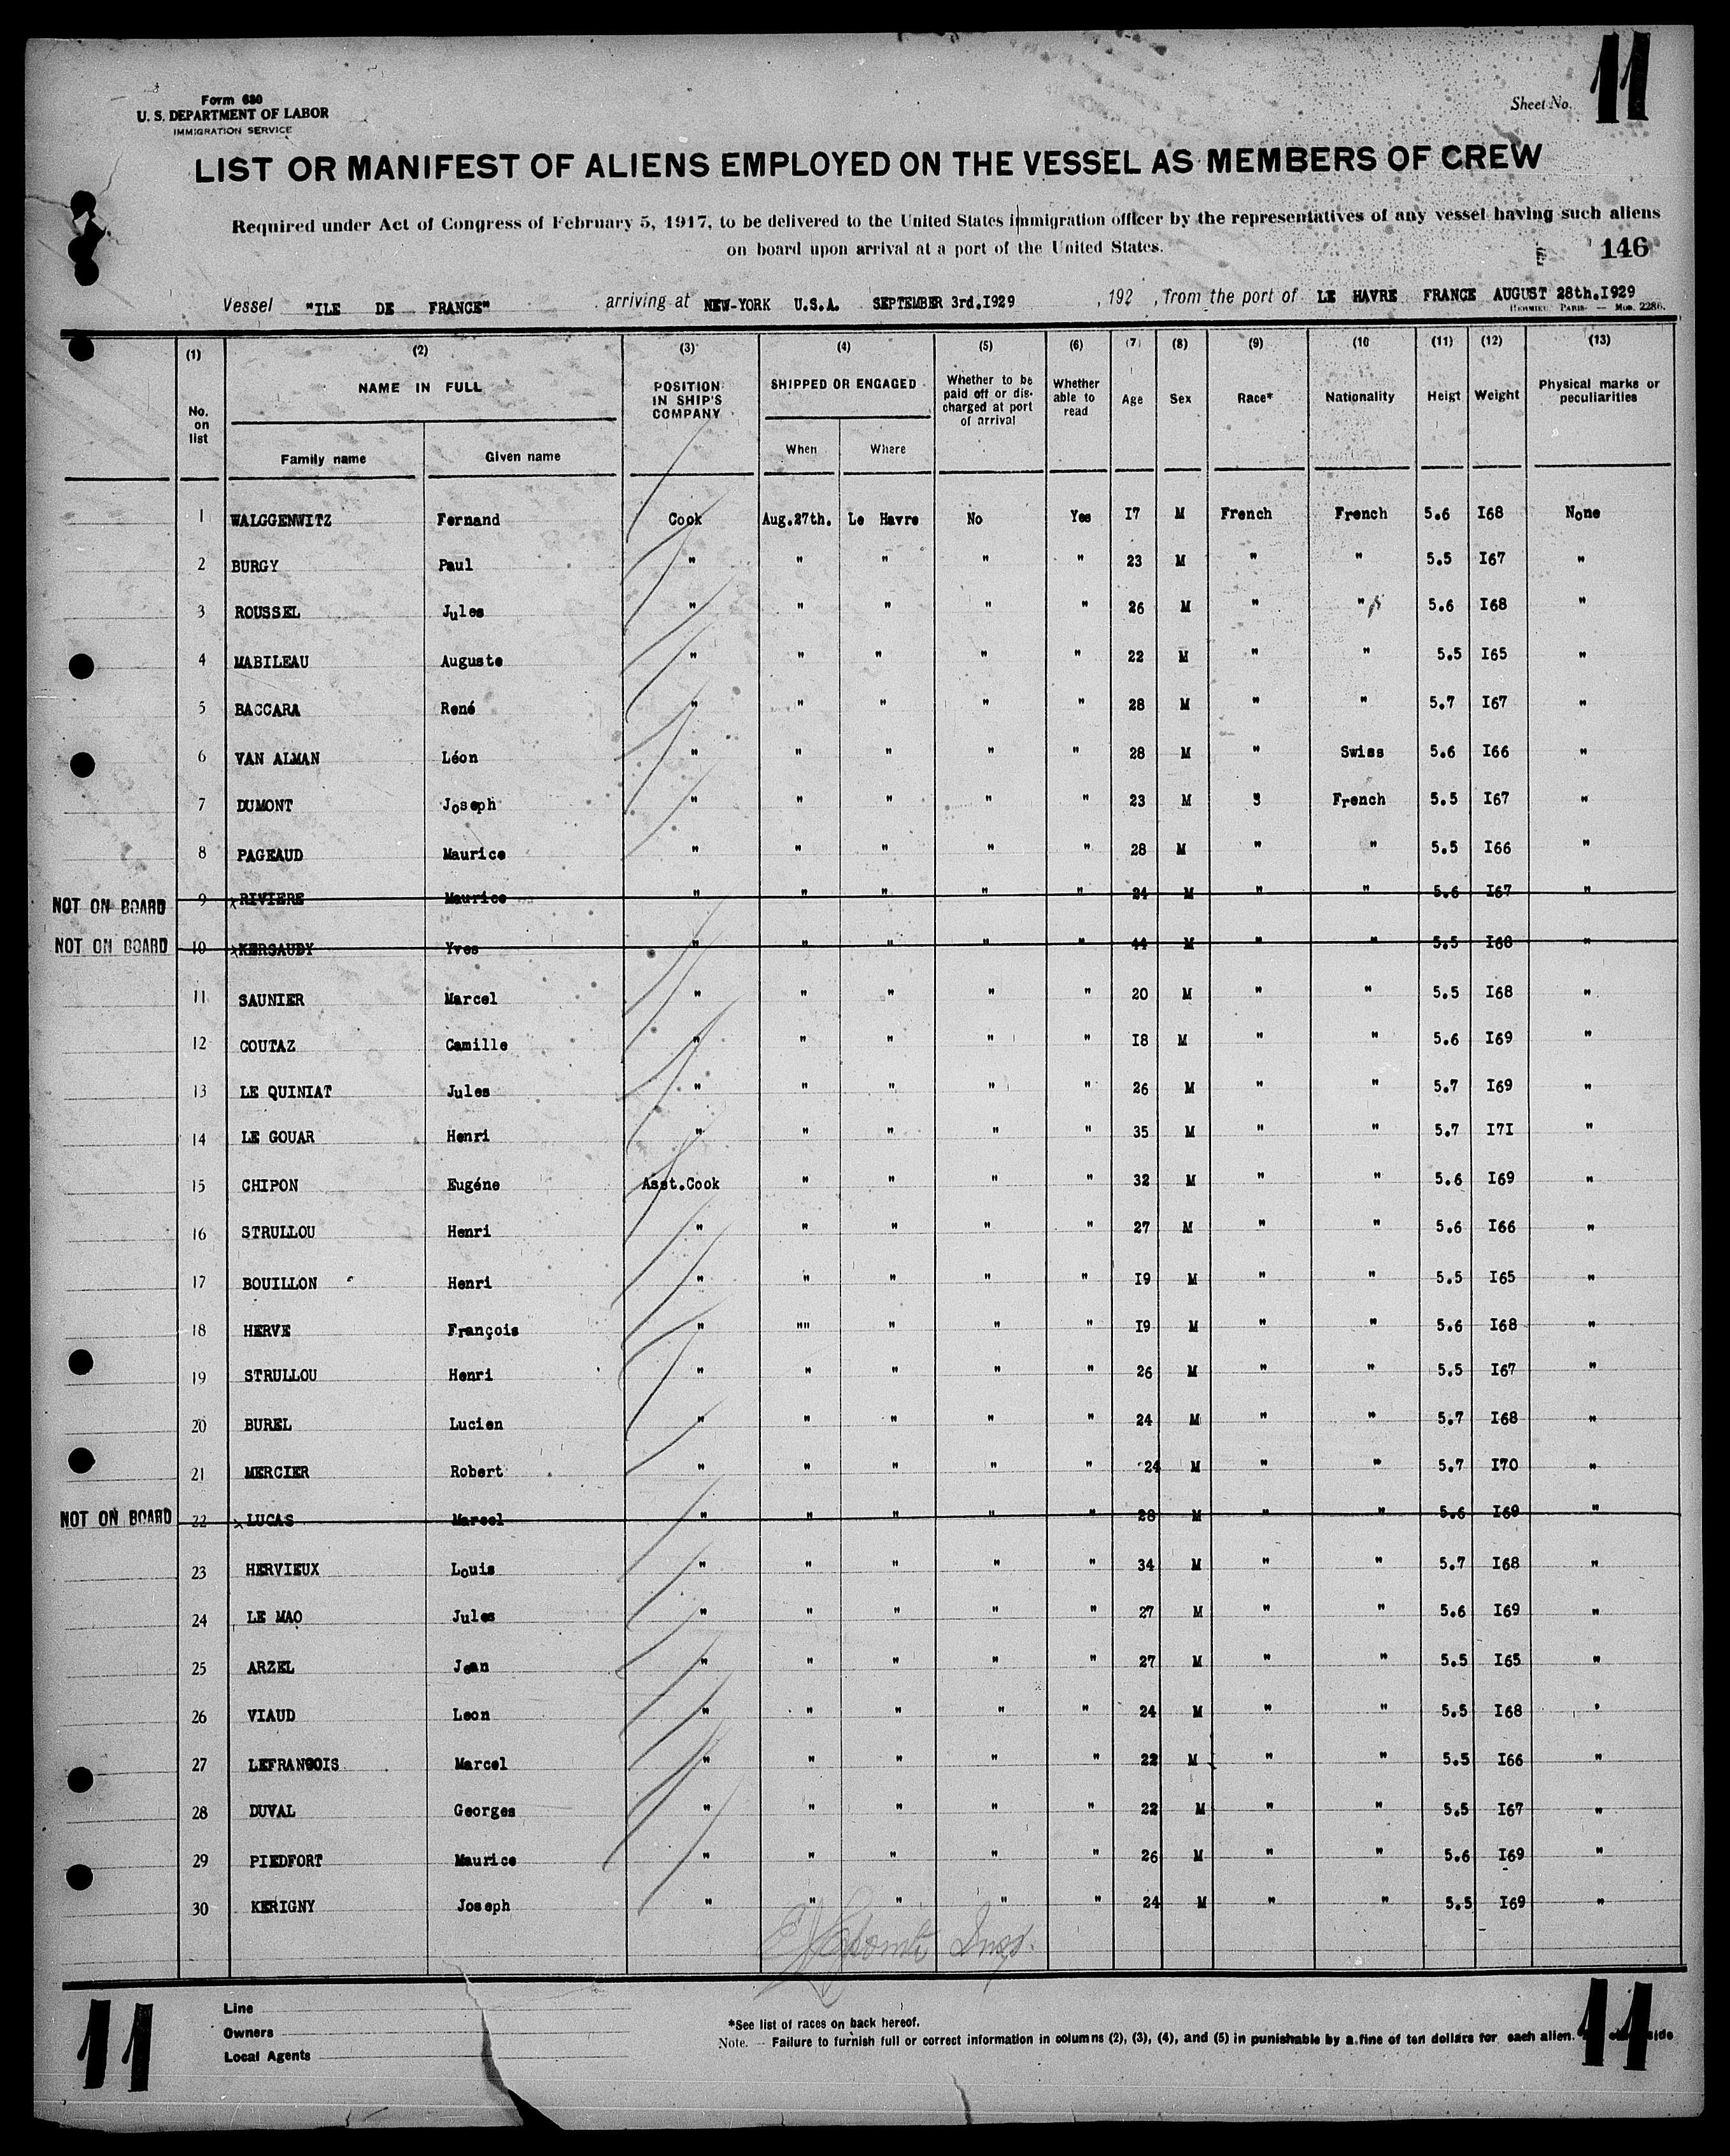 11
Sheet No.
Form 680
U. S. DEPARTMENT OF LABOR
IMMIGRATION SERVICE
LIST OR MANIFEST OF ALIENS EMPLOYED ON THE VESSEL AS MEMBERS OF CREW
Required under Act of Congress of February 5, 1917, to be delivered to the United States immigration officer by the representatives of any vessel having such aliens
on board upon arrival at a port of the United States.
146
Vessel "ILE DE FRANCE" arriving at NEW-YORK U.S.A. SEPTEMBER 3rd.I929 , 192 , from the port of LE HAVRE FRANCE AUGUST 28th.I929
HERMIEU PARIS — Mod. 2286.
(1) (2) (3) (4) (5) (6) (7) (8) (9) (10 (11) (12) (13)
No. on list NAME IN FULL Family name Given name POSITION IN SHIP'S COMPANY SHIPPED OR ENGAGED When Where Whether to be paid off or discharged at port of arrival Whether able to read Age Sex Race* Nationality Heigt Weight Physical marks or peculiarities
1 WALGGENWITZ Fernand Cook Aug.27th. Le Havre No Yes I7 M French French 5.6 I68 None
2 BURGY Paul " " " " " 23 M " " 5.5 I67 "
3 ROUSSEL Jules " " " " " 26 M " " 5.6 I68 "
4 MABILEAU Auguste " " " " 22 M " " 5.5 I65 "
5 BACCARA René " " " " " 28 M " " 5.7 I67 "
6 VAN ALMAN Léon " " " " " 28 M " Swiss 5.6 I66 "
7 DUMONT Joseph " " " " " 23 M French 5.5 I67 "
8 PAGEAUD Maurice " " " " " 28 M " " 5.5 I66 "
NOT ON BOARD 9 x RIVIERE Maurice " " " " " 24 M " " 5.6 I67 "
NOT ON BOARD 10 x KERSAUDY Yves " " " " " 44 M " " 5.5 I68 "
11 SAUNIER Marcel " " " " " 20 M " " 5.5 I68 "
12 COUTAZ Camille " " " " " I8 M " " 5.6 I69 "
13 LE QUINIAT Jules " " " " " 26 M " " 5.7 I69 "
14 LE GOUAR Henri " " " " " 35 M " " 5.7 I7I "
15 CHIPON Eugéne Asst.Cook " " " " 32 M " " 5.6 I69 "
16 STRULLOU Henri " " " " " 27 M " " 5.6 I66 "
17 BOUILLON Henri " " " " " I9 M " " 5.5 I65 "
18 HERVE François " "" " " " I9 M " " 5.6 I68 "
19 STRULLOU Henri " " " " " 26 M " " 5.5 I67 "
20 BUREL Lucien " " " " " 24 M " " 5.7 I68 "
21 MERCIER Robert " " " " " 24 M " " 5.7 I70 "
NOT ON BOARD 22 x LUCAS Marcel " " " " " 28 M " " 5.6 I69 "
23 HERVIEUX Louis " " " " " 34 M " " 5.7 I68 "
24 LE MAO Jules " " " " " 27 M " " 5.6 I69 "
25 ARZEL Jean " " " " " 27 M " " 5.5 I65 "
26 VIAUD Leon " " " " " 24 M " " 5.5 I68 '
27 LEFRANCOIS Marcel " " " " " 22 M " " 5.5 I66 "
28 DUVAL Georges " " " " " 22 M " " 5.5 I67 "
29 PIEDFORT Maurice " " " " " 26 M " " 5.6 I69 "
30 KERIGNY Joseph " " " " " 24 M " " 5.5 I69 "
Insp.
11
Line
Owners
Local Agents
*See list of races on back hereof.
Note. — Failure to furnish full or correct information in columns (2), (3), (4), and (5) in punishable by a fine of ten dollars for each alien.
11